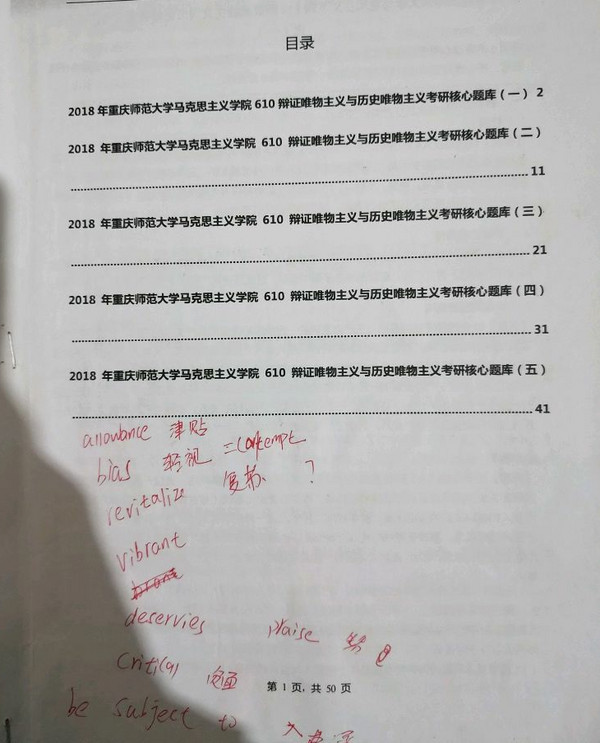 目录
2018 年重庆师范大学马克思主义学院 610 辩证唯物主义与历史唯物主义考研核心题库（一） 2
2018 年重庆师范大学马克思主义学院 610 辩证唯物主义与历史唯物主义考研核心题库（二）
........................................................................ 11
2018 年重庆师范大学马克思主义学院 610 辩证唯物主义与历史唯物主义考研核心题库（三）
........................................................................ 21
2018 年重庆师范大学马克思主义学院 610 辩证唯物主义与历史唯物主义考研核心题库（四）
........................................................................ 31
2018 年重庆师范大学马克思主义学院 610 辩证唯物主义与历史唯物主义考研核心题库（五）
........................................................................ 41
allowance 津贴
bias 轻视 = contempt
revitalize 复苏 ?
vibrant
deservies praise
critical
第 1 页, 共 50 页
be subject to